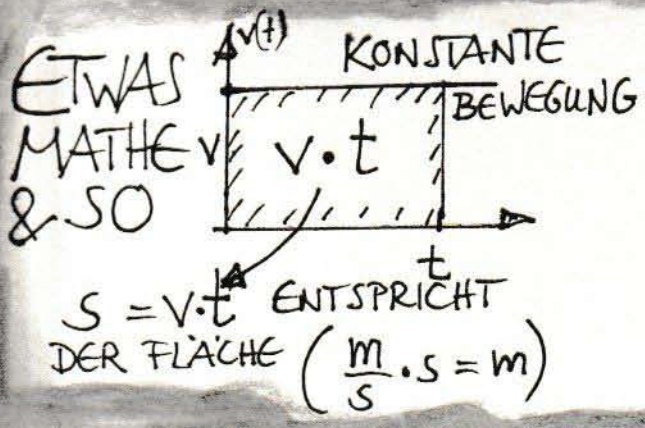 ETWAS
MATHE
& SO
v(t)
KONSTANTE
BEWEGUNG
v
v · t
t
s = v·t ENTSPRICHT
DER FLÄCHE (m/s · s = m)